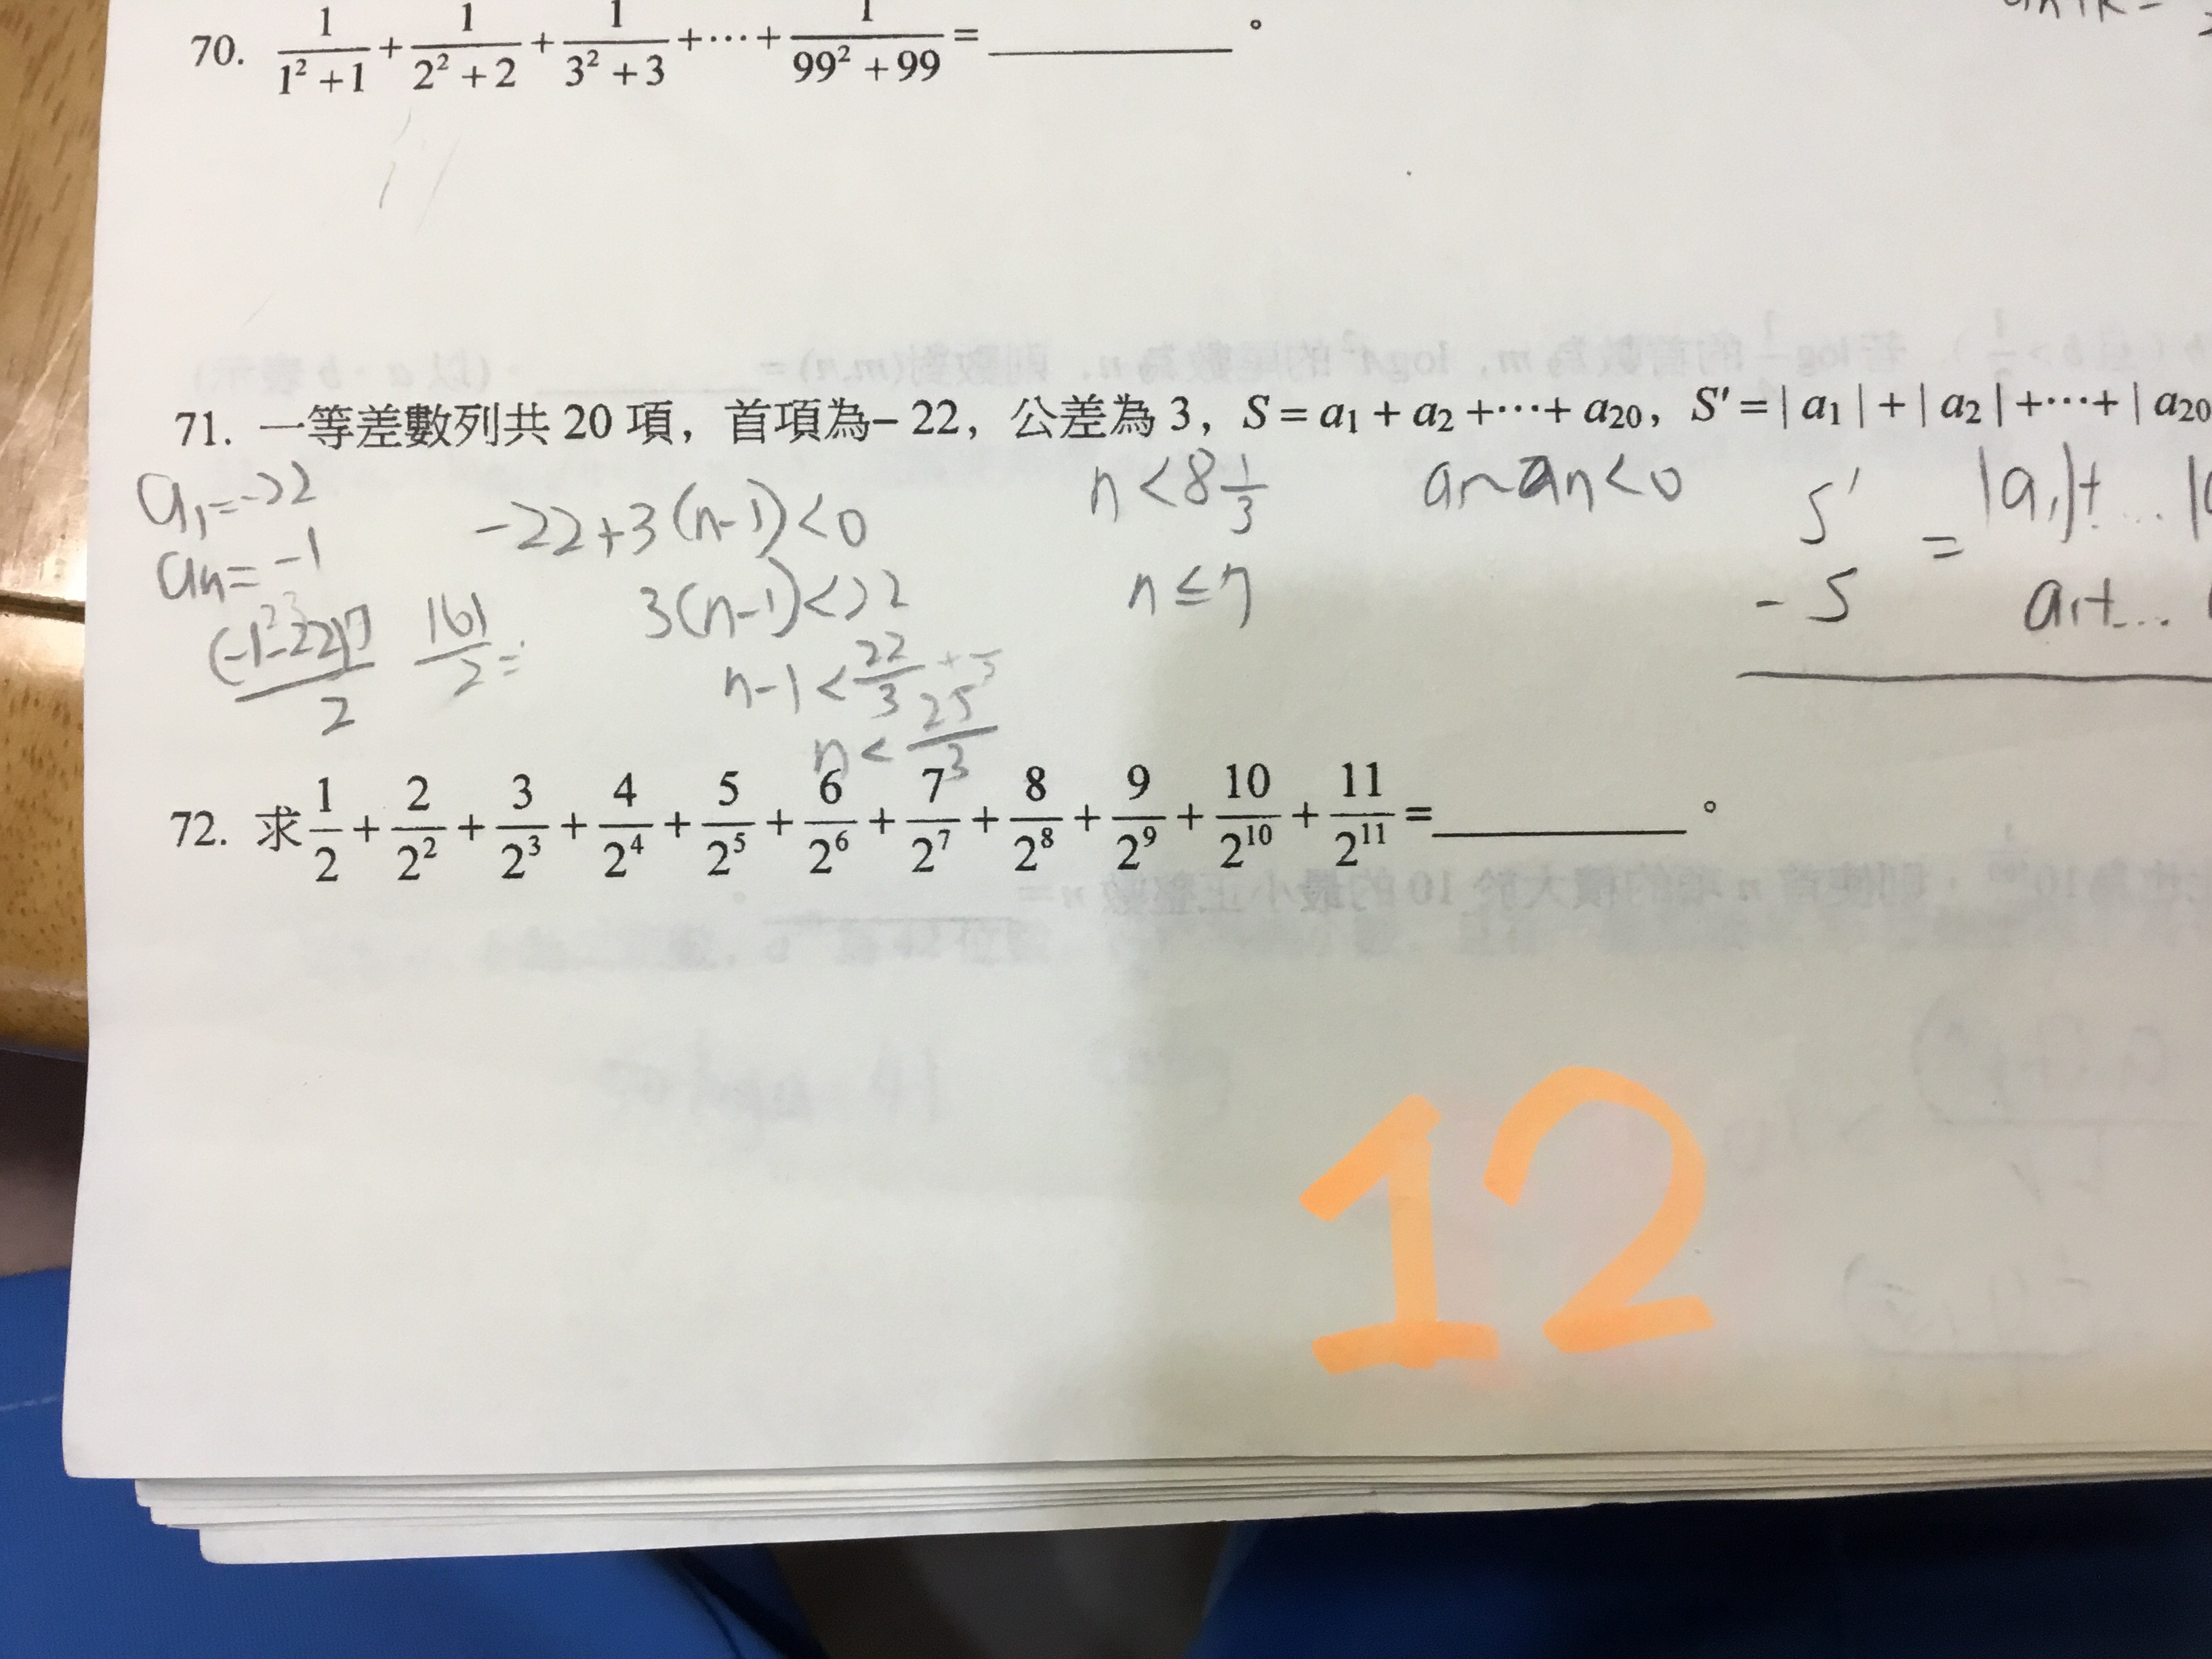 70. 1/(1²+1) + 1/(2²+2) + 1/(3²+3) +⋯+ 1/(99²+99) = ________ 。
71. 一等差數列共 20 項，首項為– 22，公差為 3，S = a₁ + a₂ +⋯+ a₂₀，S′ = | a₁ | + | a₂ | +⋯+ | a₂₀
a₁=-22
an=-1
(-1-22)7/2
161/2=
-22+3(n-1)<0
3(n-1)<22
n-1<22/3
n<25/3
n<8 1/3
n≤7
a₁~an<0
S′ = |a₁|+...
-S a₁+...
72. 求 1/2 + 2/2² + 3/2³ + 4/2⁴ + 5/2⁵ + 6/2⁶ + 7/2⁷ + 8/2⁸ + 9/2⁹ + 10/2¹⁰ + 11/2¹¹ = ________ 。
12